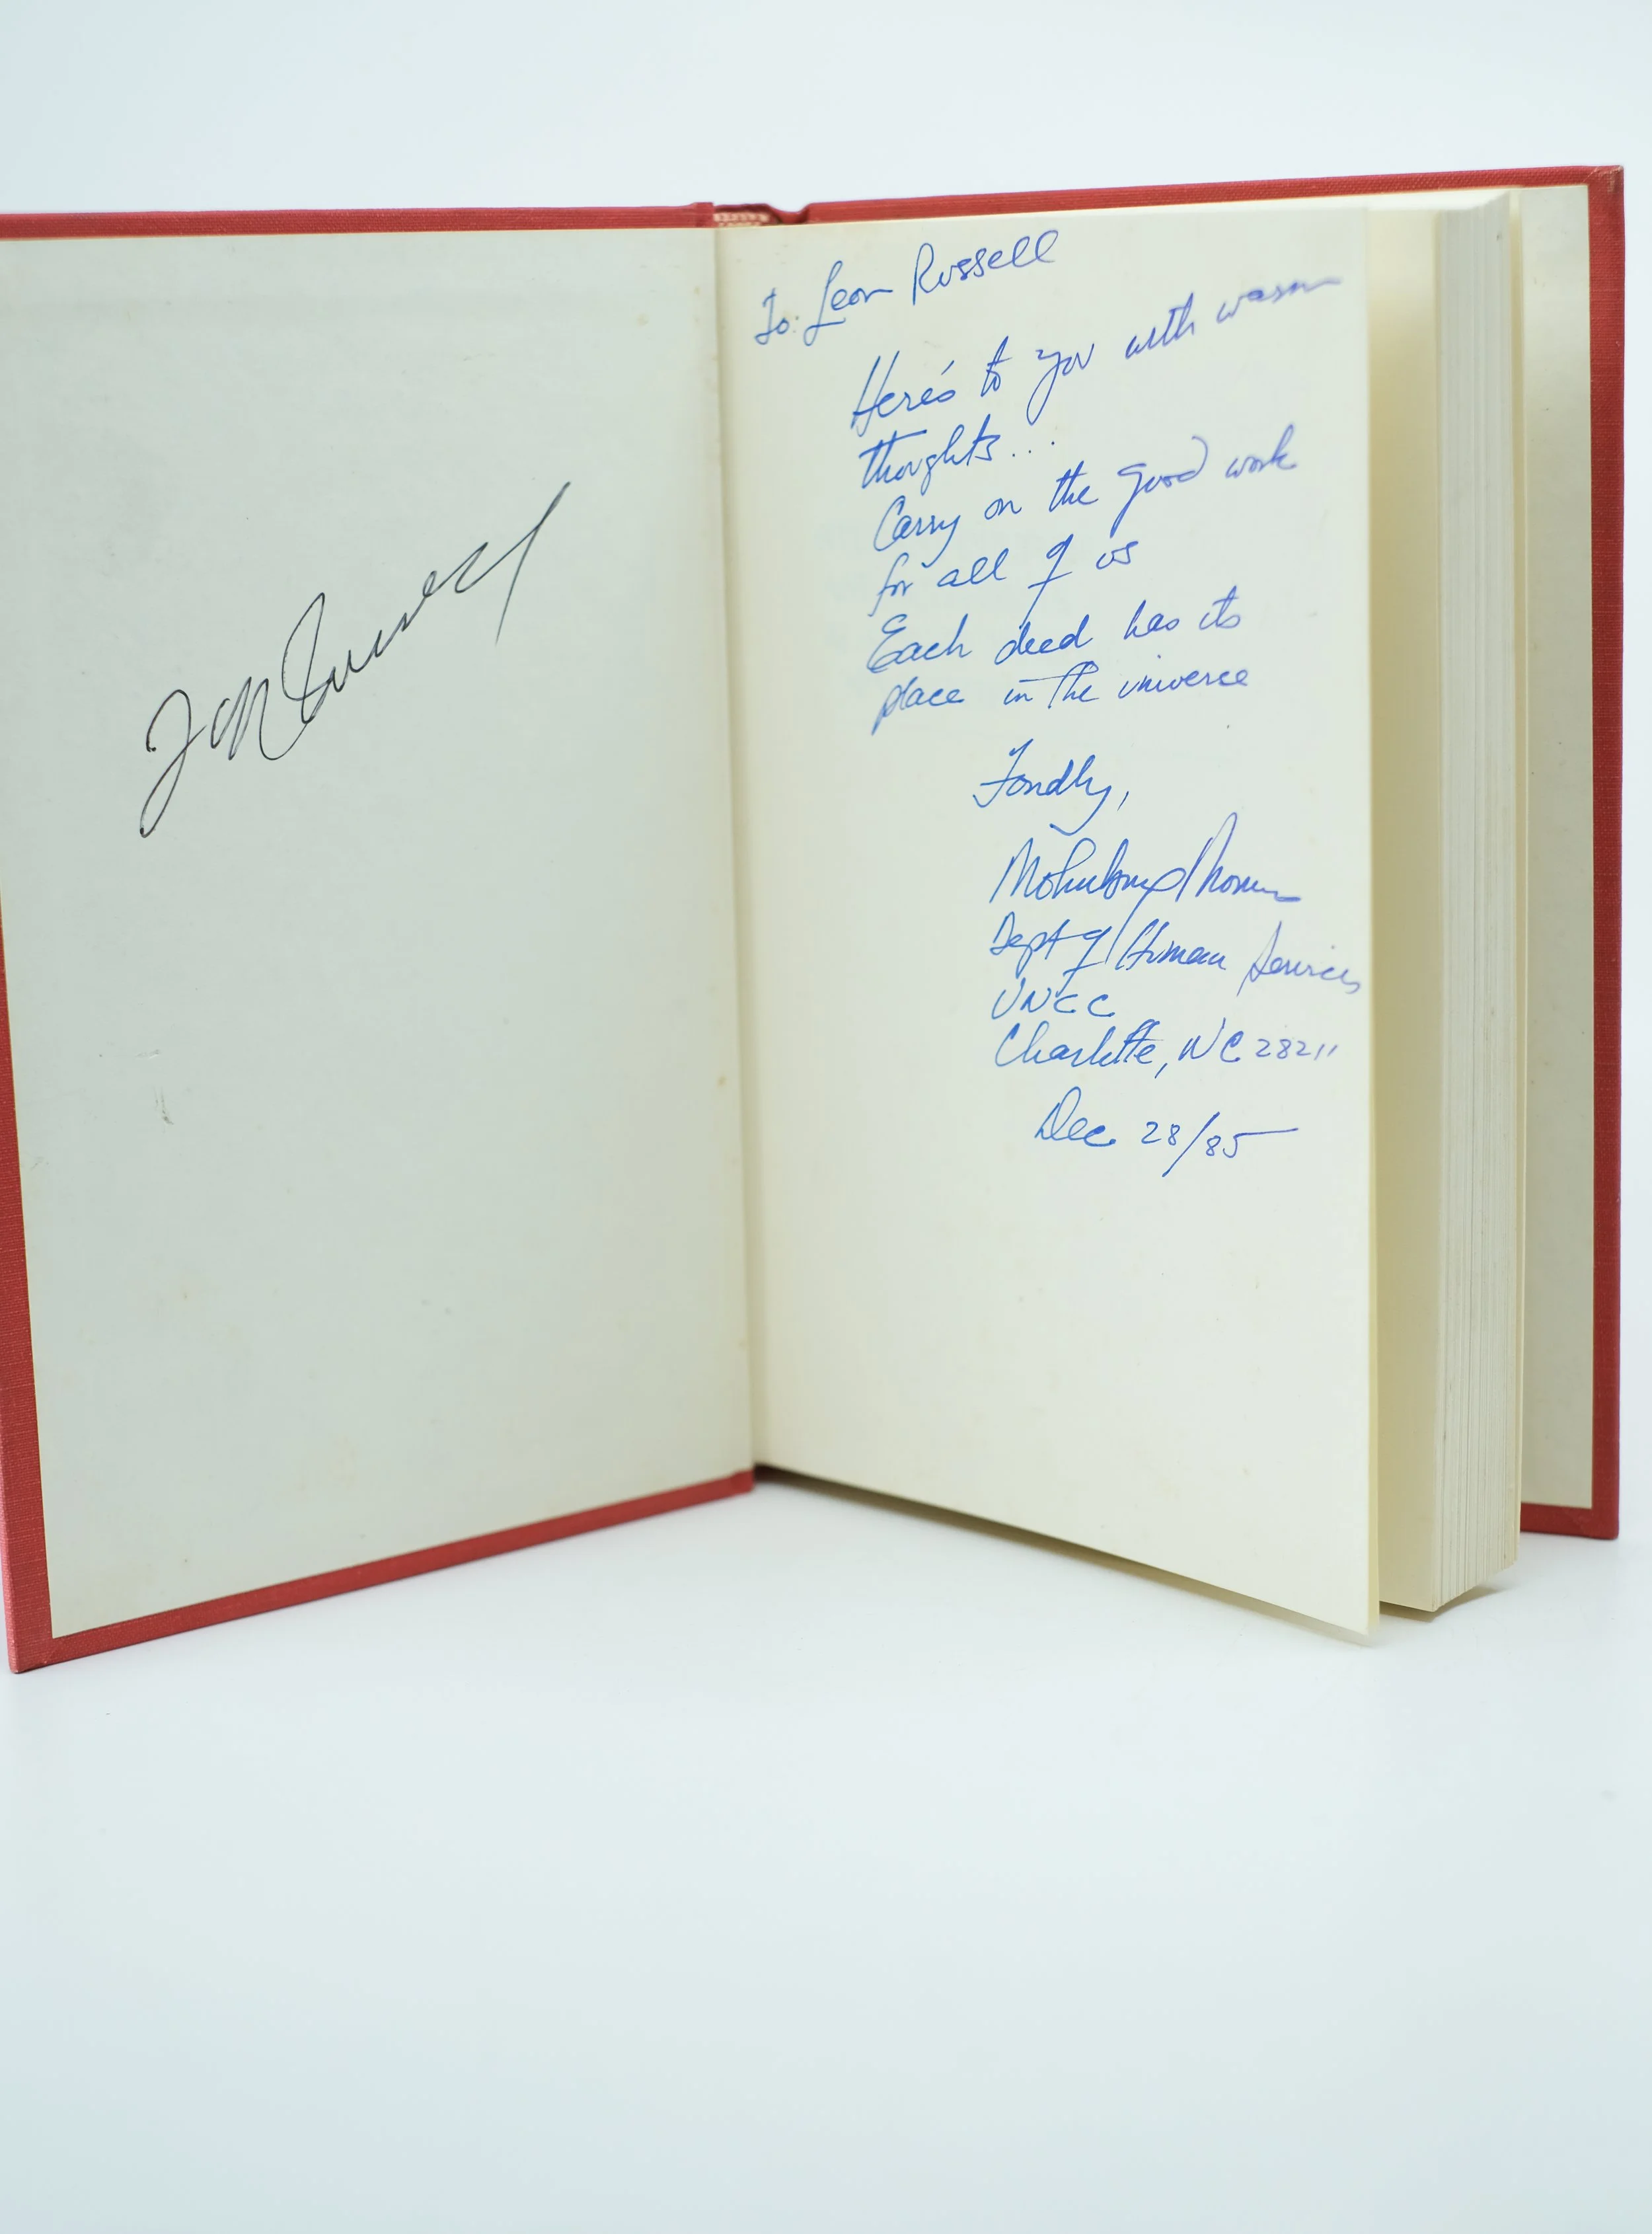 To: Leon Russell
Here's to you with warm
thoughts...
Carry on the good work
for all of us
Each deed has its
place in the universe
Fondly,
Dept of Human Services
UNCC
Charlotte, NC 28211
Dec 28/85